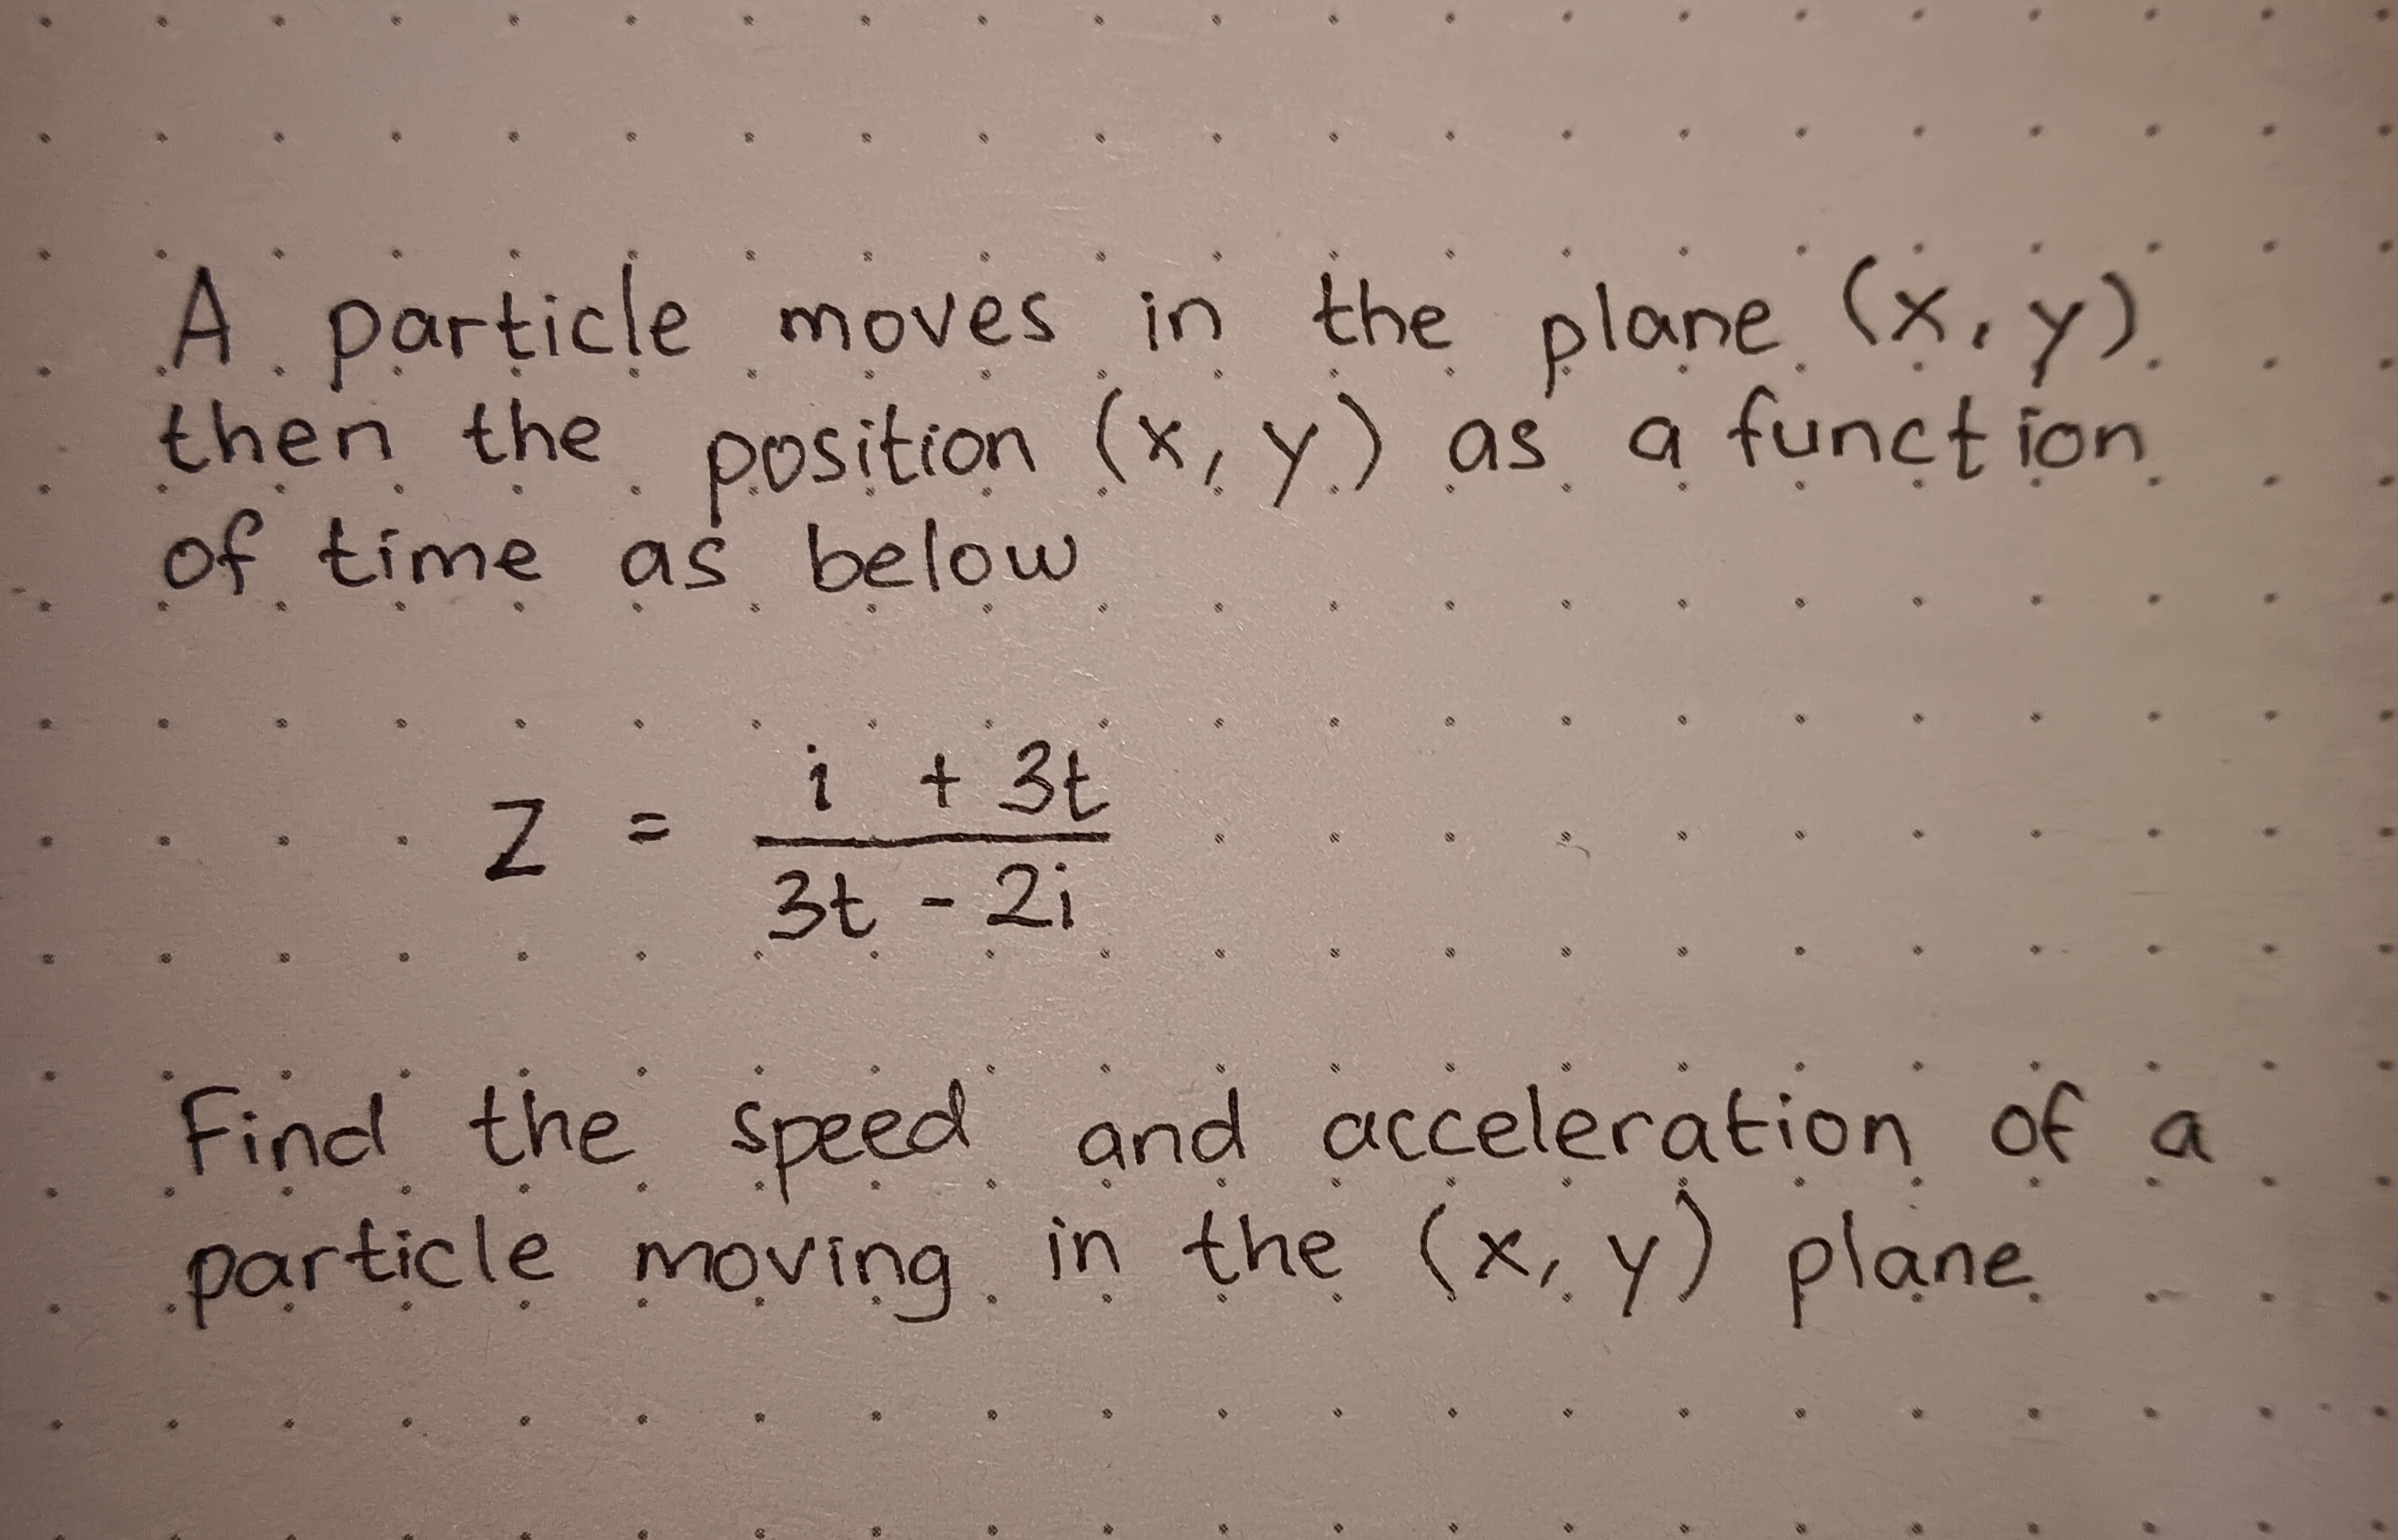 A particle moves in the plane (x, y)
then the position (x, y) as a function
of time as below
z = i + 3t
3t - 2i
Find the speed and acceleration of a
particle moving in the (x, y) plane